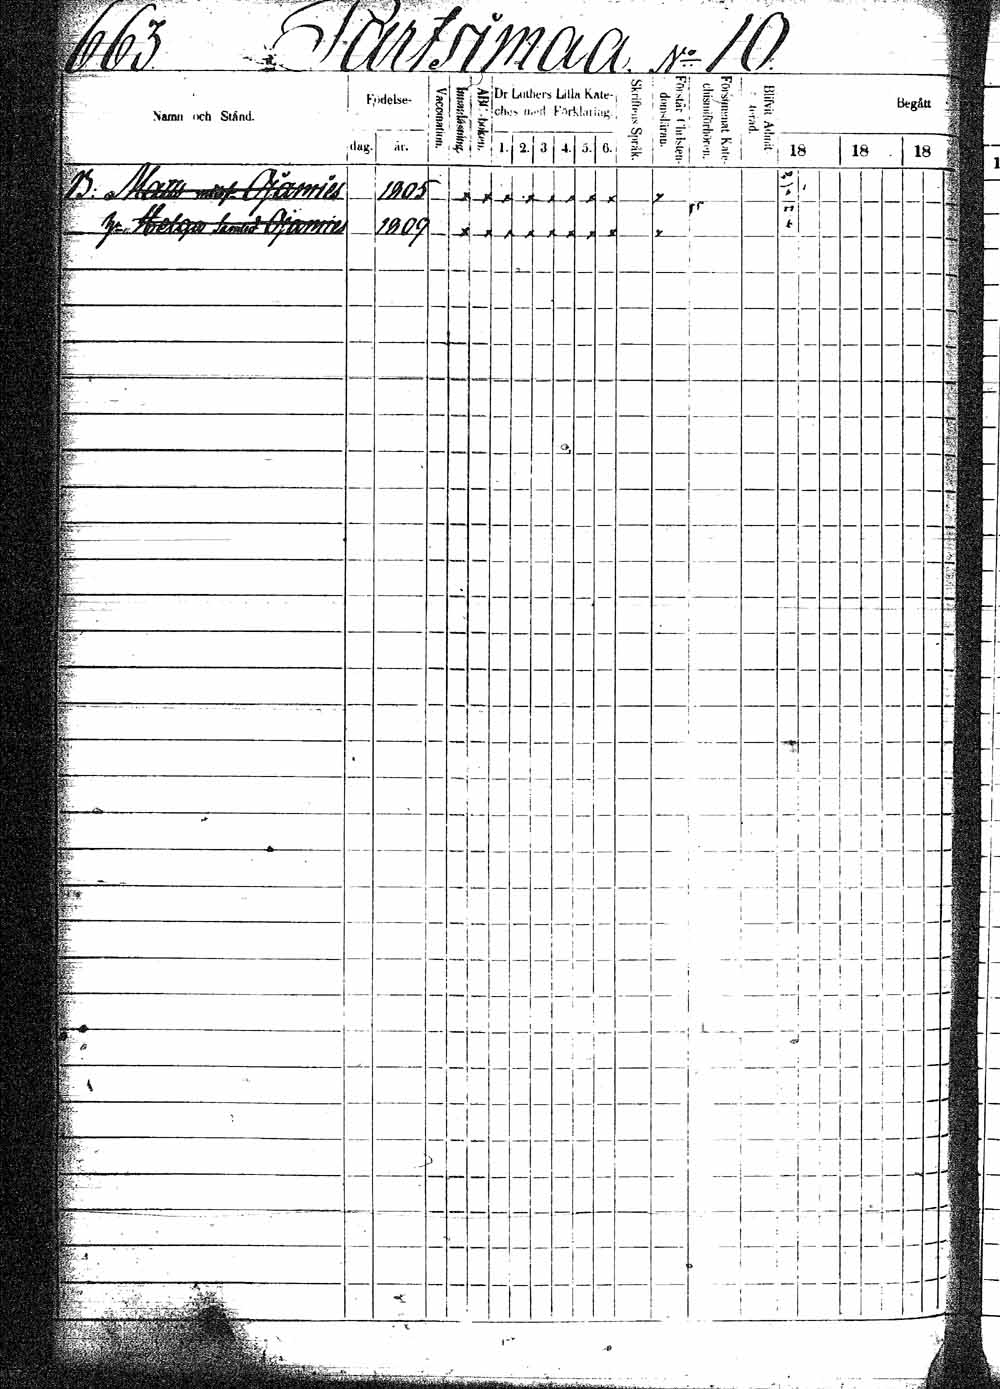 663 Partsimaa. No 10.
Namn och Stånd.
Födelse-
dag. år.
Vaccination.
Innanläsning.
ABC-boken.
Dr Luthers Lilla Kate-
ches med Förklaring.
1. 2. 3 4. 5. 6.
Skriftens Språk.
Förstår Christen-
domsläran.
Försummat Kate-
chismiförhören.
Blifvit Admit-
terad.
Begått
18 18 18
B. Matts Ojamies 1905 x x x x x x x x x
Helga Ojamies 1909 x x x x x x x x x